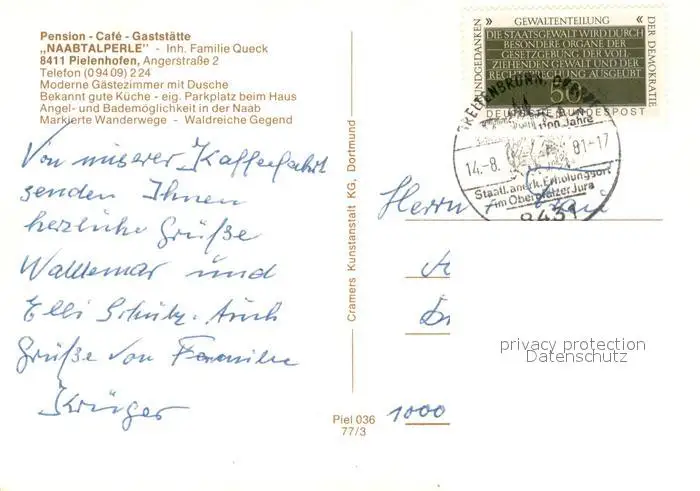 Pension - Café - Gaststätte
„NAABTALPERLE" - Inh. Familie Queck
8411 Pielenhofen, Angerstraße 2
Telefon (0 94 09) 2 24
Moderne Gästezimmer mit Dusche
Bekannt gute Küche - eig. Parkplatz beim Haus
Angel- und Bademöglichkeit in der Naab
Markierte Wanderwege - Waldreiche Gegend
Von unserer Kaffeefahrt
senden Ihnen
herzliche Grüße
Waldemar und
Elli Schulz. Auch
Grüße von Familie
Krüger
Cramers Kunstanstalt KG, Dortmund
Piel 036
77/3
GRUNDGEDANKEN
» GEWALTENTEILUNG «
DER DEMOKRATIE
DIE STAATSGEWALT WIRD DURCH
BESONDERE ORGANE DER
GESETZGEBUNG DER VOLL-
ZIEHENDEN GEWALT UND DER
RECHTSPRECHUNG AUSGEÜBT
50
DEUTSCHE BUNDESPOST
BREITENBRUNN
1100 Jahre
14.-8. 81-17
Staatl. anerk. Erholungsort
im Oberpfälzer Jura
8431
Herrn
1000
privacy protection
Datenschutz